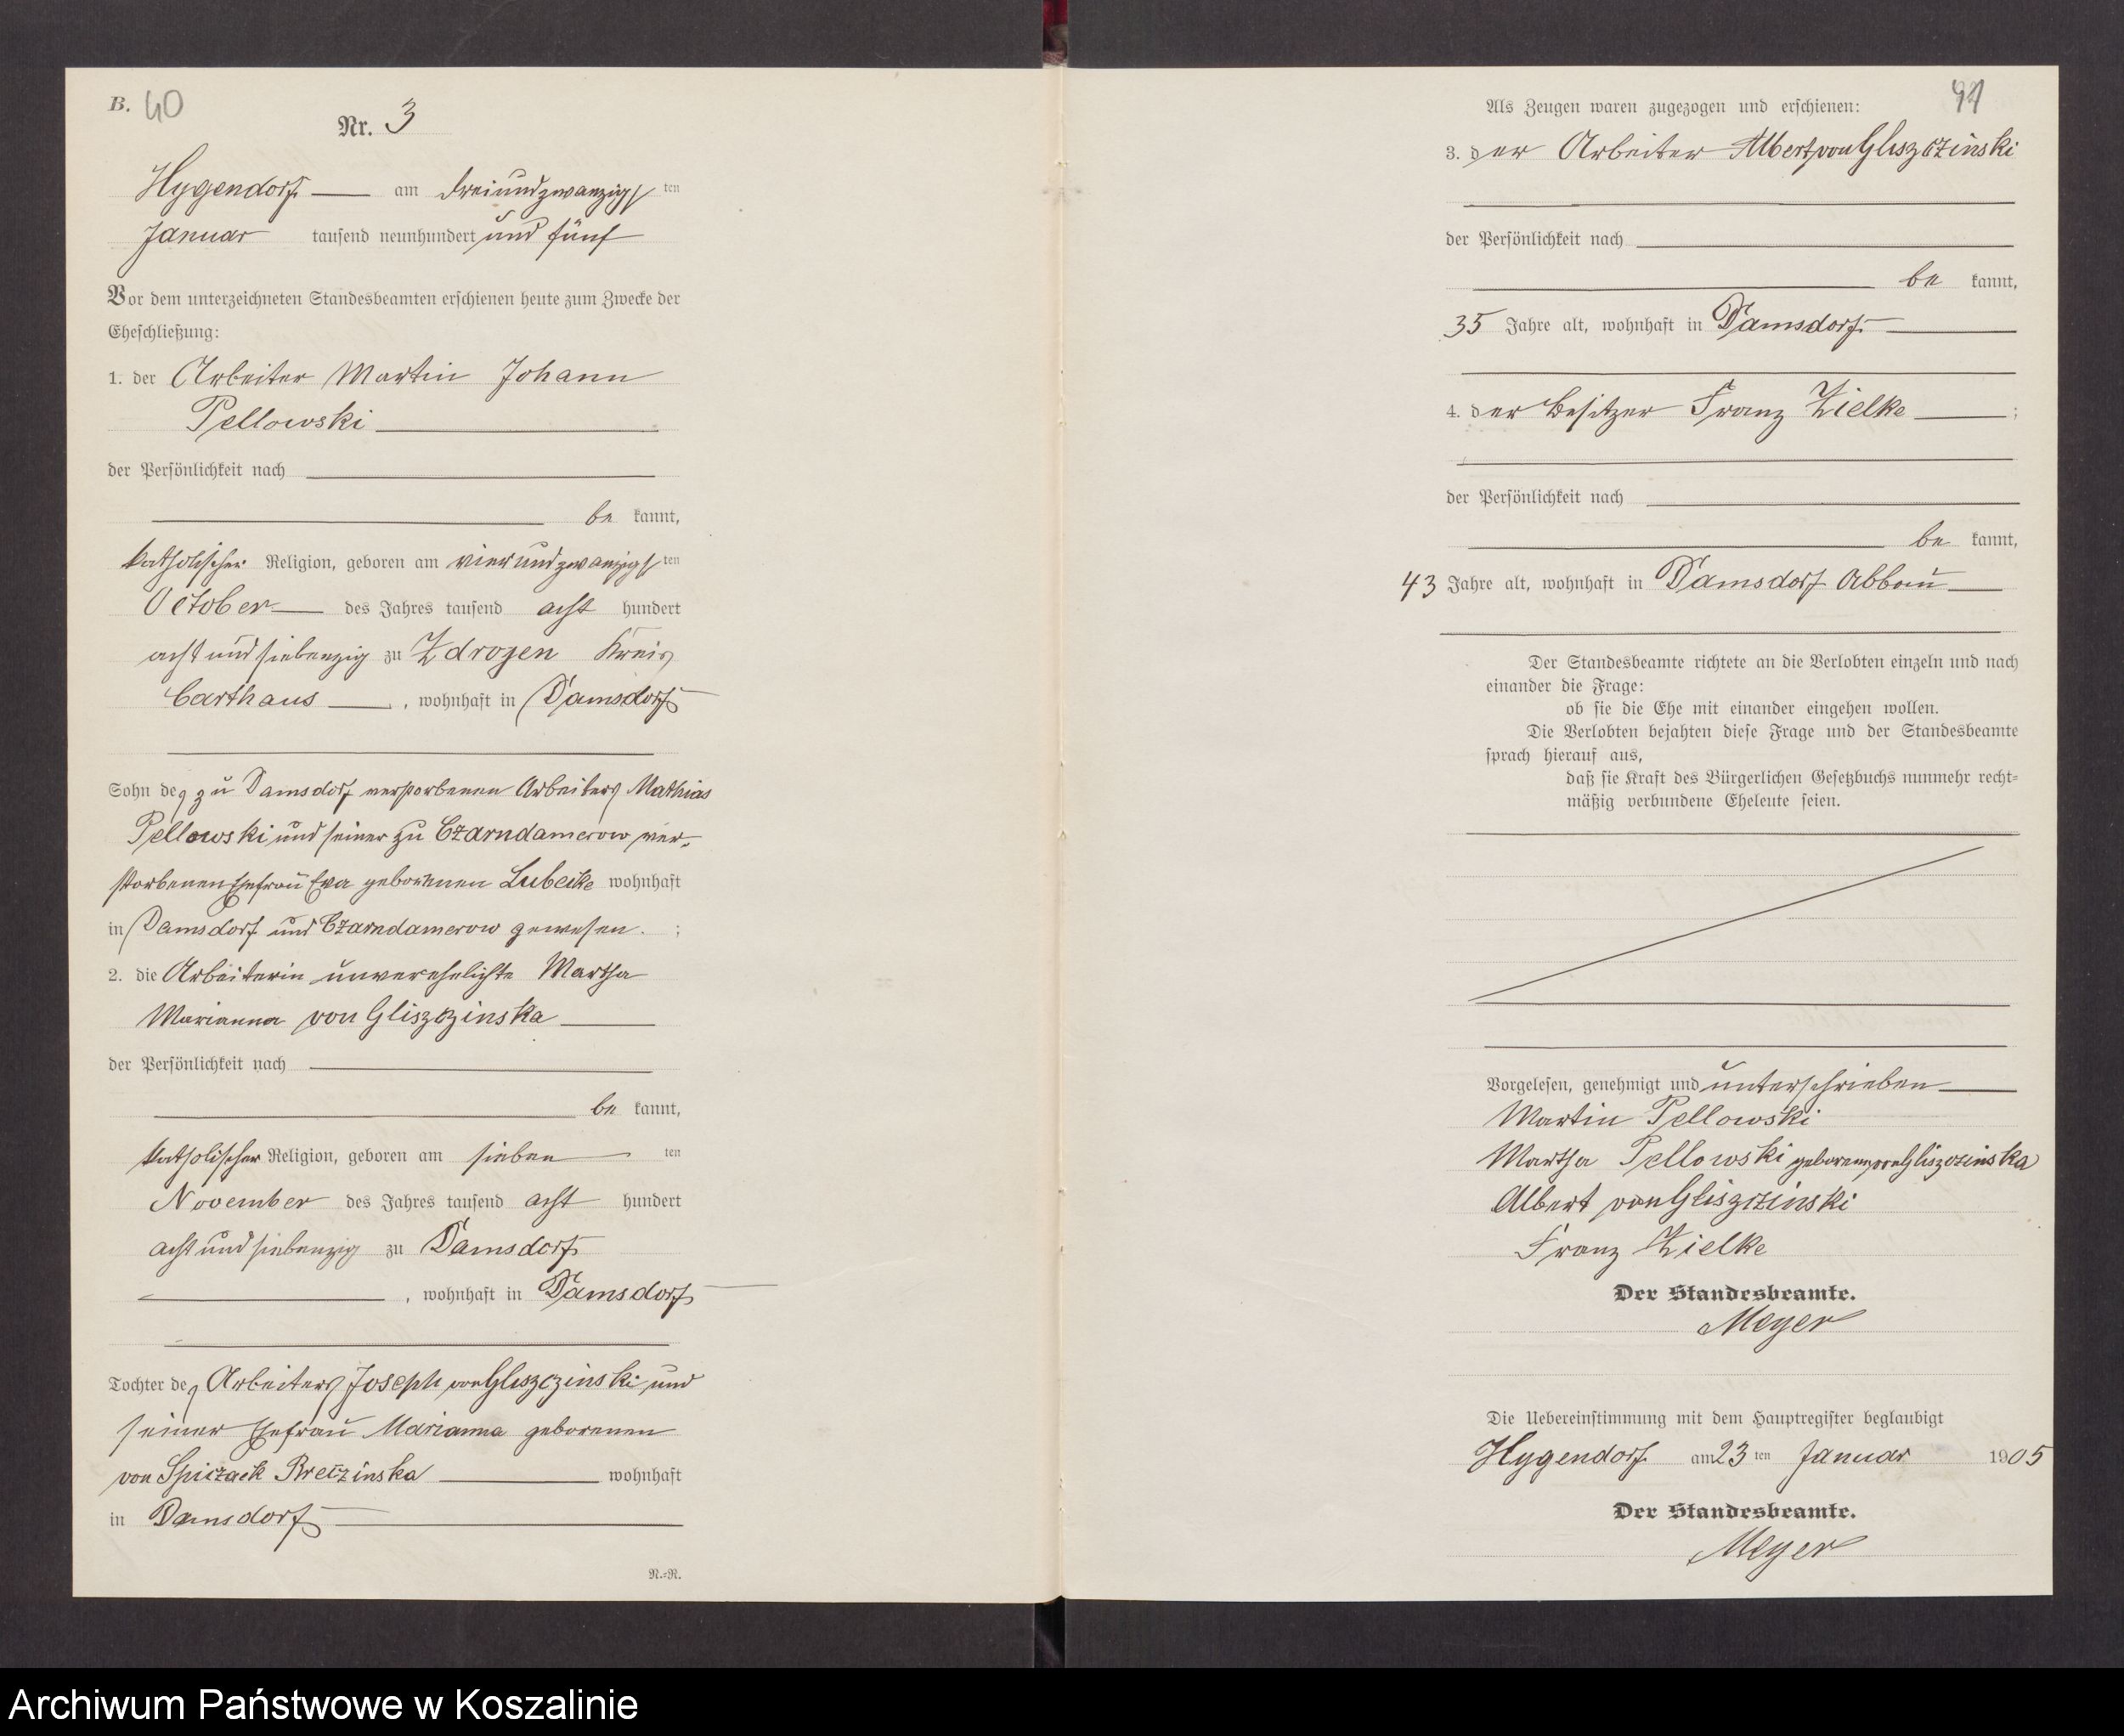 B. 40
Nr. 3
Hygendorf am dreiundzwanzigsten
Januar tausend neunhundert und fünf
Vor dem unterzeichneten Standesbeamten erschienen heute zum Zwecke der
Eheschließung:
1. der Arbeiter Martin Johann
Pellowski
der Persönlichkeit nach
be kannt,
katholischer Religion, geboren am vierundzwanzigsten
October des Jahres tausend acht hundert
acht und siebenzig zu Zdrojen Kreis
Carthaus, wohnhaft in Damsdorf
Sohn des zu Damsdorf verstorbenen Arbeiters Mathias
Pellowski und seiner zu Czarndamerow ver-
storbenen Ehefrau Eva geborenen Lubecke wohnhaft
in Damsdorf und Czarndamerow gewesen. ;
2. die Arbeiterin unverehelichte Martha
Marianna von Gliszczinska
der Persönlichkeit nach
be kannt,
katholischer Religion, geboren am sieben ten
November des Jahres tausend acht hundert
acht und siebenzig zu Damsdorf
, wohnhaft in Damsdorf
Tochter des Arbeiters Joseph von Gliszczinski und
seiner Ehefrau Marianna geborenen
von Spiczack Brezinska wohnhaft
in Damsdorf
N.=N.
41
Als Zeugen waren zugezogen und erschienen:
3. der Arbeiter Albert von Gliszczinski
der Persönlichkeit nach
be kannt,
35 Jahre alt, wohnhaft in Damsdorf
4. der Besitzer Franz Zielke ;
der Persönlichkeit nach
be kannt,
43 Jahre alt, wohnhaft in Damsdorf Abbau
Der Standesbeamte richtete an die Verlobten einzeln und nach
einander die Frage:
ob sie die Ehe mit einander eingehen wollen.
Die Verlobten bejahten diese Frage und der Standesbeamte
sprach hierauf aus,
daß sie Kraft des Bürgerlichen Gesetzbuchs nunmehr recht=
mäßig verbundene Eheleute seien.
Vorgelesen, genehmigt und unterschrieben
Martin Pellowski
Martha Pellowski geborene von Gliszczinska
Albert von Gliszczinski
Franz Zielke
Der Standesbeamte.
Meyer
Die Uebereinstimmung mit dem Hauptregister beglaubigt
Hygendorf am 23 ten Januar 1905
Der Standesbeamte.
Meyer
Archiwum Państwowe w Koszalinie